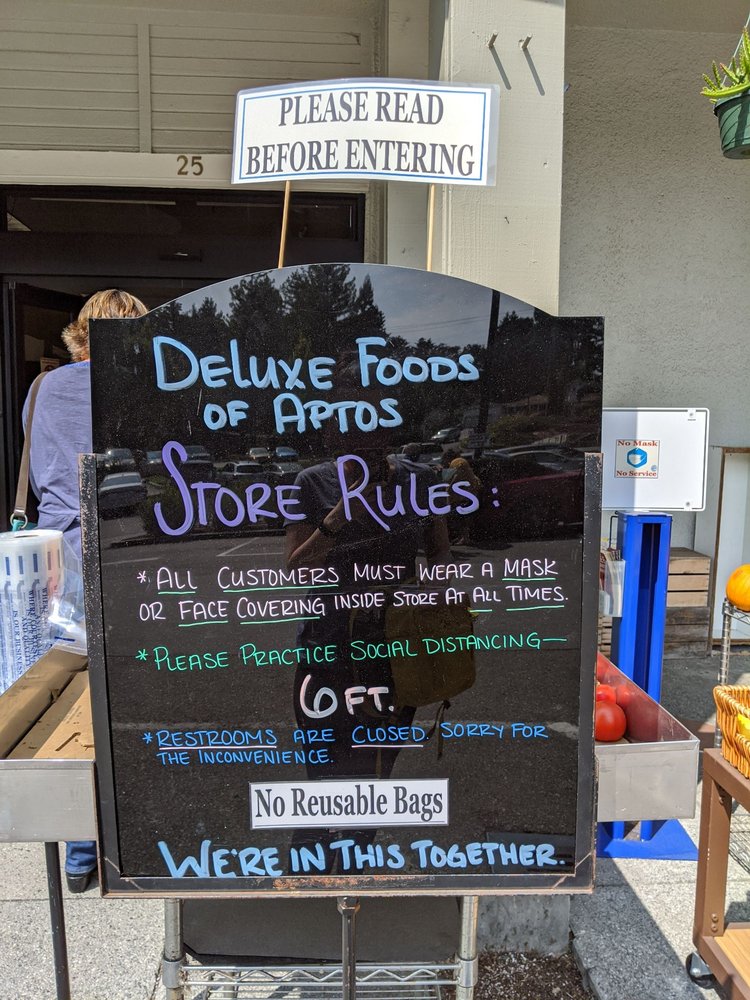 PLEASE READ
BEFORE ENTERING
25
DELUXE FOODS
OF APTOS
STORE RULES:
No Mask
No Service
* ALL CUSTOMERS MUST WEAR A MASK
OR FACE COVERING INSIDE STORE AT ALL TIMES.
* PLEASE PRACTICE SOCIAL DISTANCING—
6 FT.
* RESTROOMS ARE CLOSED. SORRY FOR
THE INCONVENIENCE.
No Reusable Bags
WE'RE IN THIS TOGETHER.